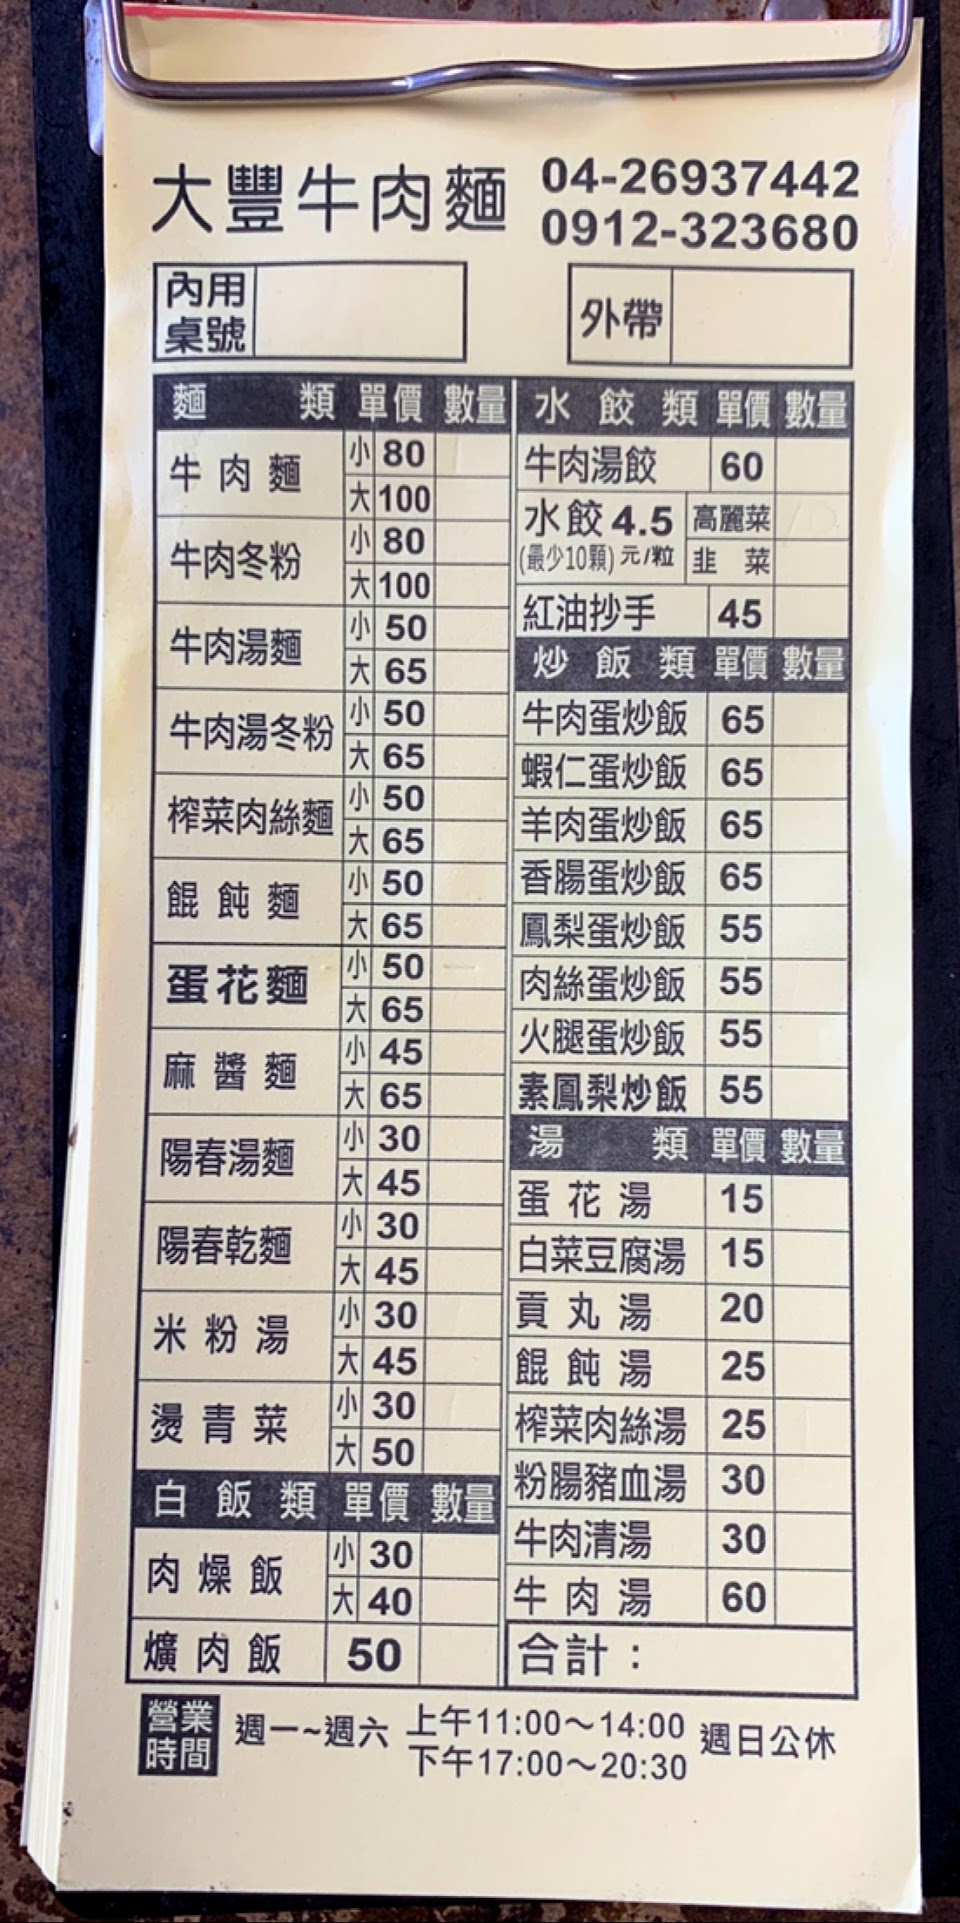 大豐牛肉麵 04-26937442
0912-323680
內用桌號
外帶
麵類 單價 數量
牛肉麵 小 80
大 100
牛肉冬粉 小 80
大 100
牛肉湯麵 小 50
大 65
牛肉湯冬粉 小 50
大 65
榨菜肉絲麵 小 50
大 65
餛飩麵 小 50
大 65
蛋花麵 小 50
大 65
麻醬麵 小 45
大 65
陽春湯麵 小 30
大 45
陽春乾麵 小 30
大 45
米粉湯 小 30
大 45
燙青菜 小 30
大 50
白飯類 單價 數量
肉燥飯 小 30
大 40
爌肉飯 50
水餃類 單價 數量
牛肉湯餃 60
水餃 4.5 高麗菜
(最少10顆) 元/粒 韭菜
紅油抄手 45
炒飯類 單價 數量
牛肉蛋炒飯 65
蝦仁蛋炒飯 65
羊肉蛋炒飯 65
香腸蛋炒飯 65
鳳梨蛋炒飯 55
肉絲蛋炒飯 55
火腿蛋炒飯 55
素鳳梨炒飯 55
湯類 單價 數量
蛋花湯 15
白菜豆腐湯 15
貢丸湯 20
餛飩湯 25
榨菜肉絲湯 25
粉腸豬血湯 30
牛肉清湯 30
牛肉湯 60
合計：
營業時間 週一~週六 上午11:00～14:00 週日公休
下午17:00～20:30